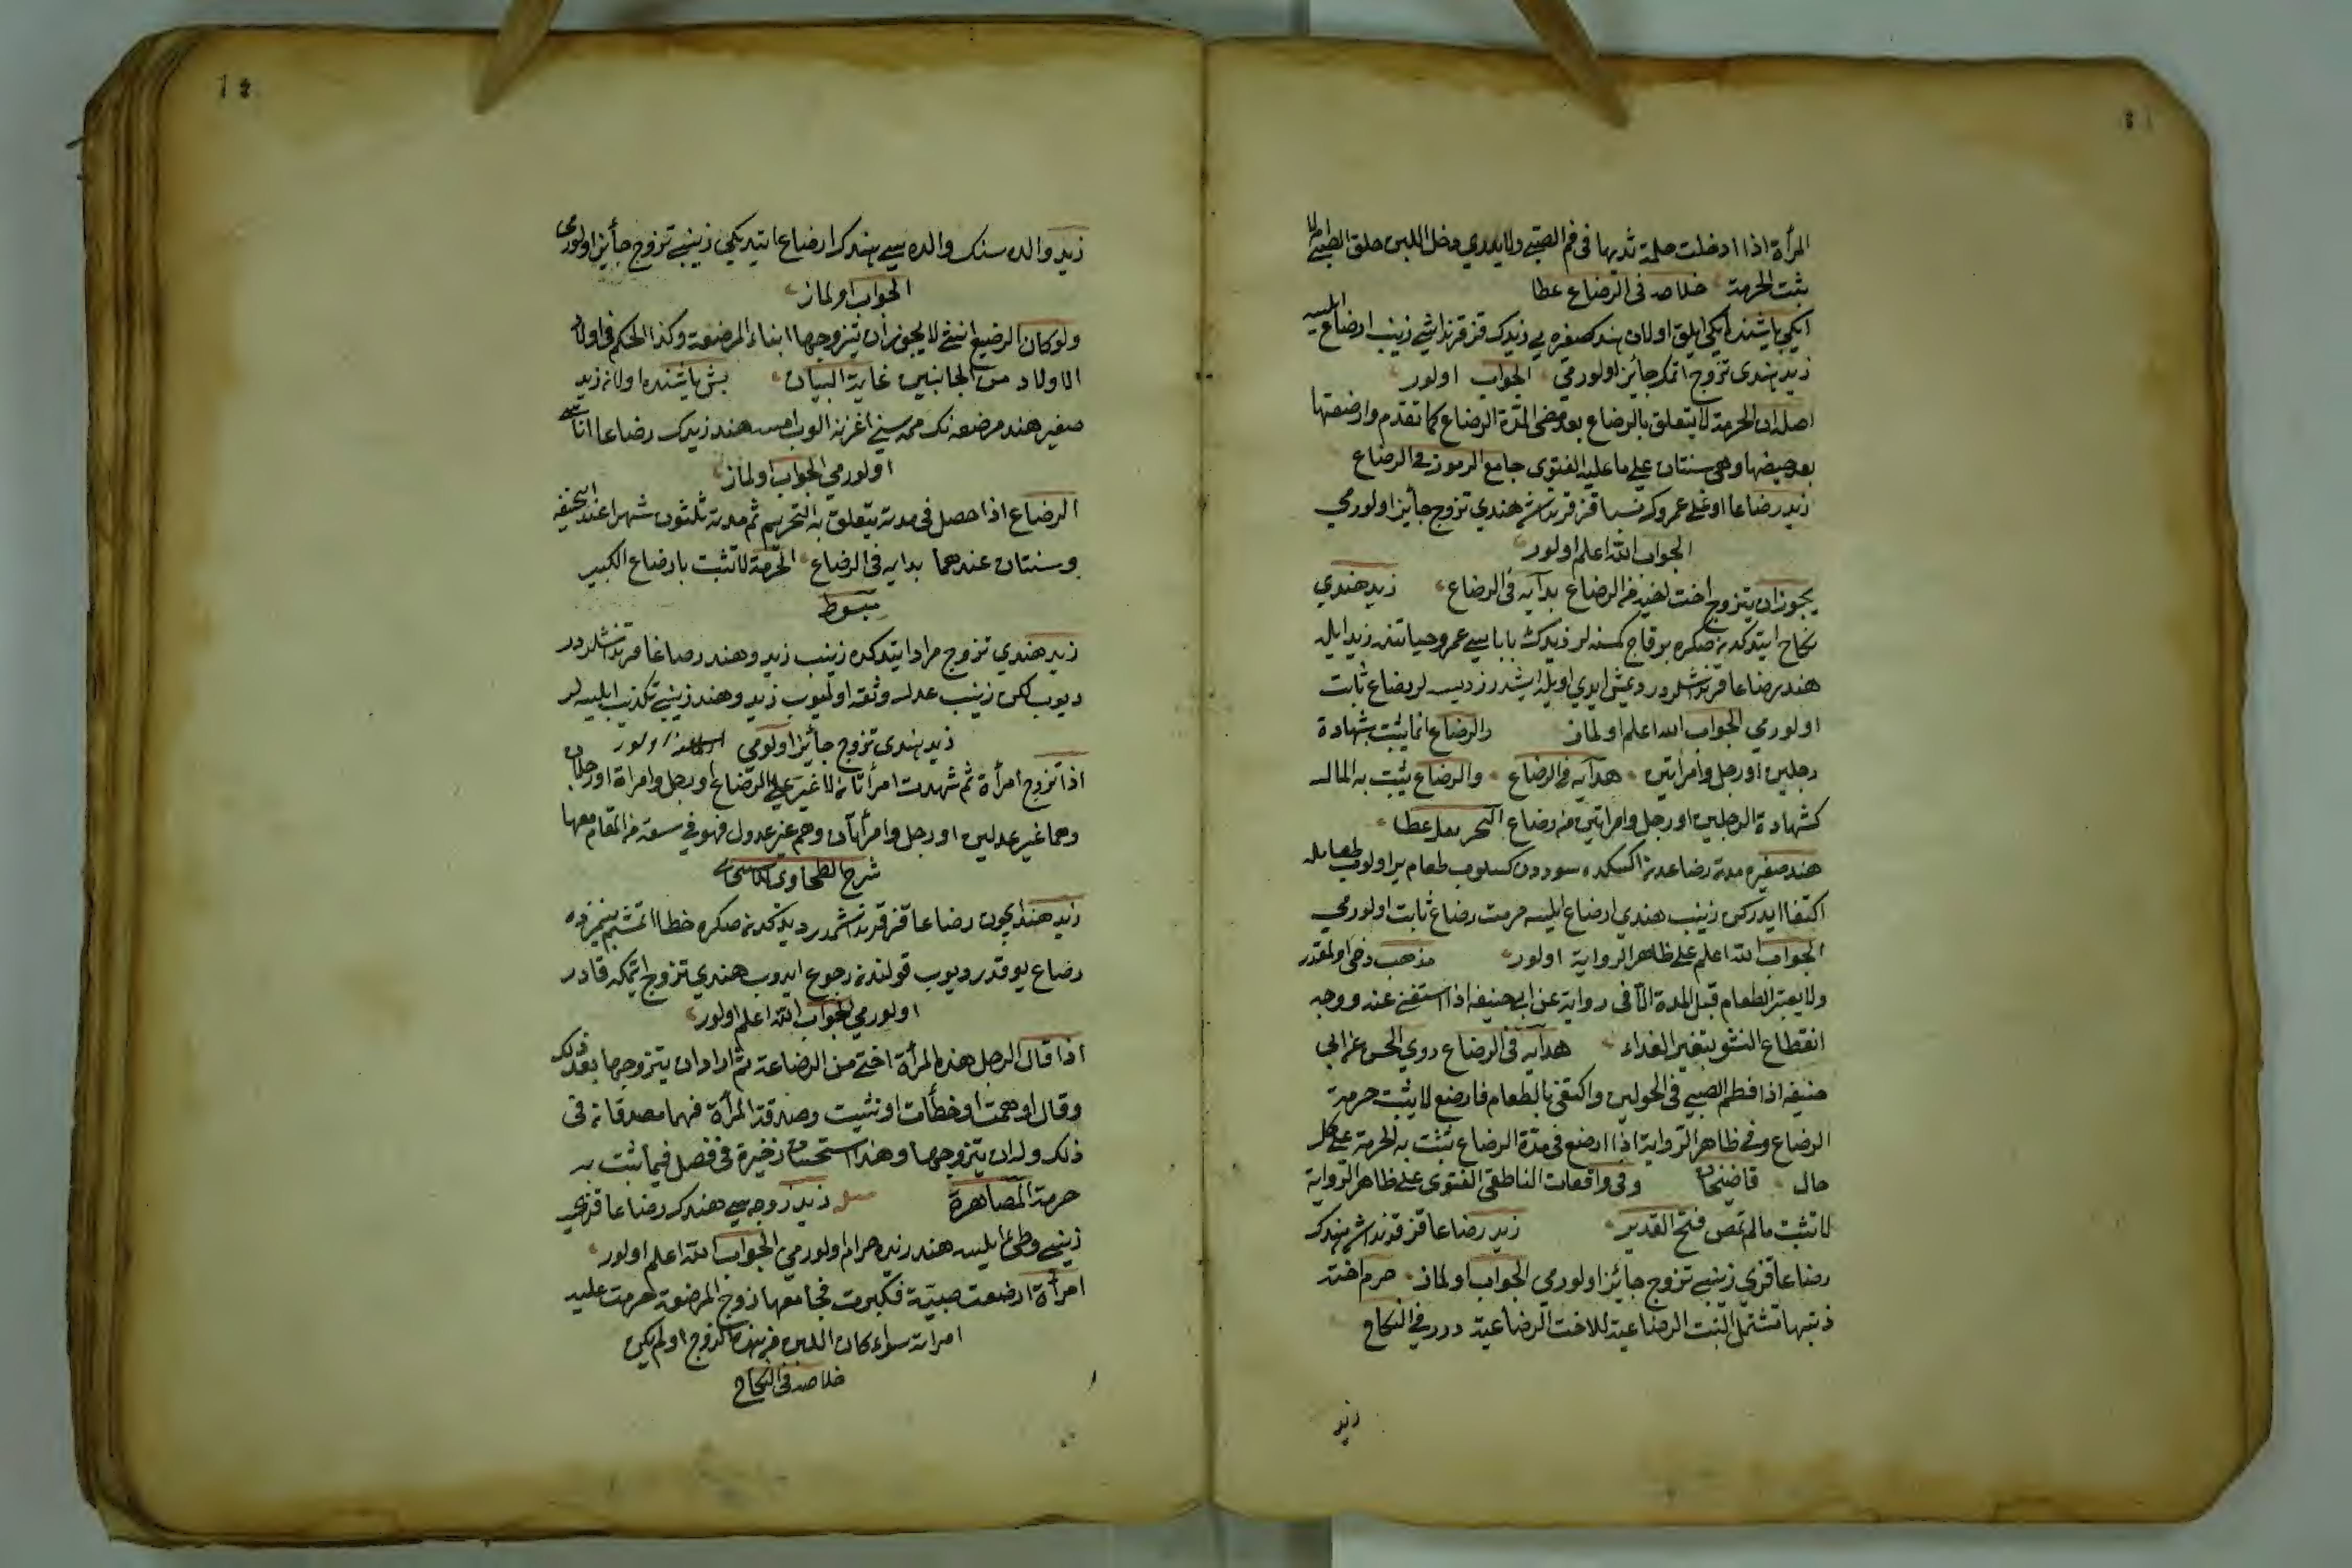 المرأة اذا ادخلت حلمة ثديها فى فم الصبى ولا يدري دخل اللبن حلق الصبى ام لا
يثبت الحرمة خلاصه فى الرضاع عطا
ايكى ياشنده ايكى ايلق اولان هند صغيره يى زيدك قز قرنداشى زينب ارضاع ايلسه
زيد هندى تزوج اتمك جائز اولورمى الجواب اولور
اصله ان الحرمة لا يتعلق بالرضاع بعد مضى المدة الرضاع كما تقدم وارضعتها
بعد وهى سنتان على ما عليه الفتوى جامع الرموز فى الرضاع
زيد رضاعا اوغلى عمروك نسبا قز قرنداشى هندي تزوج جائز اولورمي
الجواب الله اعلم اولور
يجوز ان يتزوج اخت اخيه من الرضاع هدايه فى الرضاع زيد هندي
نكاح ايتدكدنصكره بو قاج كمسنه لر زيدك باباسى عمرو حياتنده زيد ايله
هند رضاعا قرنداشلردر ديمش ايدي اويله ايشدرز ديسه لر رضاع ثابت
اولورمي الجواب الله اعلم اولماز والرضاع انما يثبت بشهادة
رجلين او رجل وامرأتين هدايه فى الرضاع والرضاع يثبت به المال
كشهادة الرجلين او رجل وامرأتين من رضاع البحر عطا
هند صغيره مدة رضاعدن اكسكده سوددن كسلوب طعام ير اولوب طعامله
اكتفا ايدركن زينب هندي ارضاع ايلسه حرمت رضاع ثابت اولورمي
الجواب الله اعلم على ظاهر الرواية اولور مذهب
ولا يعتبر الطعام قبل المدة الا فى رواية عن ابى حنيفه اذا استغنى عنه ووجه
انقطاع النشو بتغير الغذاء هدايه فى الرضاع روي الحسن عن ابي
حنيفه اذا فطم الصبى فى الحولين واكتفى بالطعام فارضع لا يثبت حرمة
الرضاع وفى ظاهر الرواية اذا ارضع فى مدة الرضاع تثبت به الحرمة على كل
حال قاضيخان وفى واقعات الناطفى الفتوى على ظاهر الرواية
لا تثبت مالم تمص فتح القدير زيد رضاعا قز قرنداشى هندك
رضاعا قزي زينبى تزوج جائز اولورمى الجواب اولماز حرم اخته
وبنتها تشتمل البنت الرضاعية للاخت الرضاعية درر فى النكاح
زيد
زيد والده سنك والده سى هندك ارضاع ايتديكى زينبى تزوج جائز اولورمى
الجواب اولماز
ولو كان الرضيع انثى لا يجوز ان يتزوجها ابناء المرضعة وكذا الحكم فى اولاد
الاولاد من الجانبين غاية البيان بش ياشنده اولان زيد
صغير هند مرضعه نك ممه سنى اغزنه الوب امسه هند زيدك رضاعا اناسى
اولورمي الجواب اولماز
الرضاع اذا حصل فى مدته يتعلق به التحريم ثم مدته ثلثون شهرا عند ابى حنيفه
وسنتان عندهما هدايه فى الرضاع الحرمة لا تثبت بارضاع الكبير
مبسوط
زيد هندي تزوج مراد ايتدكده زينب زيد وهند رضاعا قرنداشلردر
ديوب لكن زينب عدله وثقه اولميوب زيد وهند زينبى تكذيب ايلسه لر
زيد هندى تزوج جائز اولورمى اولور
اذا تزوج امرأة ثم شهدت امرأتان لا غير على الرضاع او رجل وامرأة او رجلان
وهما غير عدلين او رجل وامرأتان وهم غير عدول فهو فى سعة من المقام معها
شرح الطحاوى
زيد هند ايچون رضاعا قز قرنداشمدر ديدكدنصكره خطا اتمشم بينمزده
رضاع يوقدر ديوب قولندن رجوع ايدوب هندي تزوج اتمكه قادر
اولورمي الجواب الله اعلم اولور
اذا قال الرجل هذه المرأة اختى من الرضاعة ثم اراد ان يتزوجها بعد ذلك
وقال اوهمت او خطأت او نسيت وصدقته المرأة فهما مصدقان فى
ذلك وله ان يتزوجها وهذا استحسان ذخيرة فى فصل فيما يثبت به
حرمة المصاهرة زيد زوجه سى هندك رضاعا قزي
زينبى وطئ ايلسه هند زيده حرام اولورمي الجواب الله اعلم اولور
امرأة ارضعت صبية فكبرت فجامعها زوج المرضعة حرمت عليه
امرأته سواء كان اللبن من هذا الزوج او لم يكن
خلاصه فى النكاح